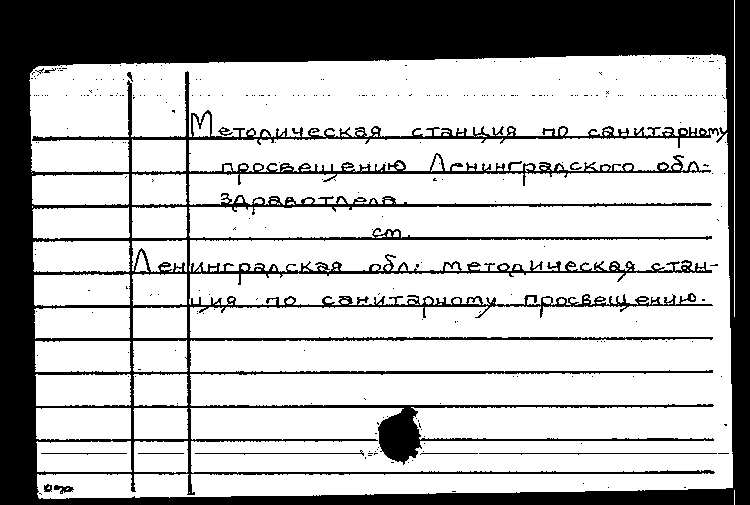 Методическая станция по санитарному
просвещению Ленинградского обл-
здравотдела.
см.
Ленинградская обл. методическая стан-
ция по санитарному просвещению.